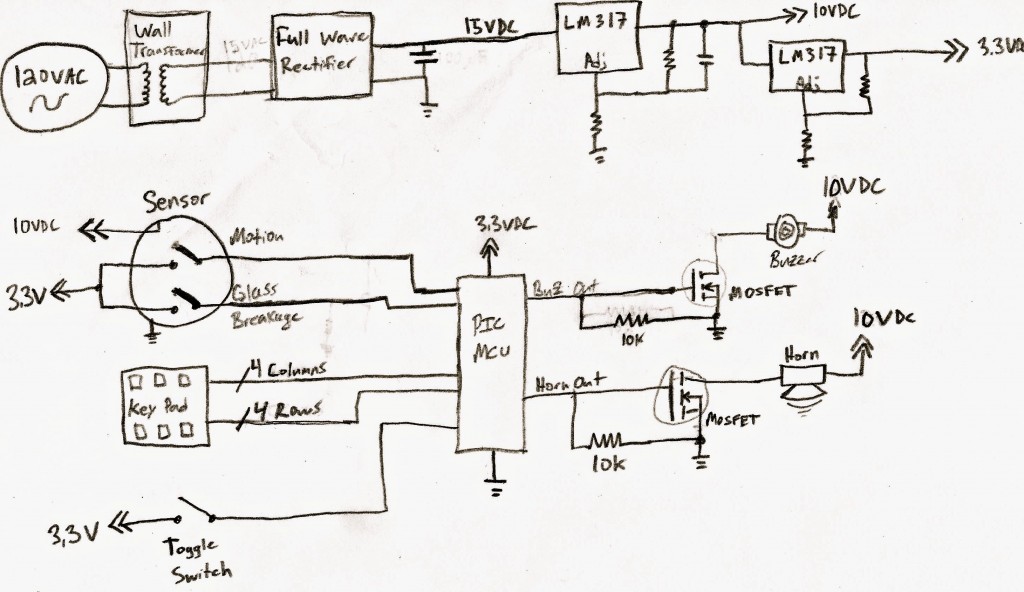 Wall
Transformer
120VAC
15VAC
Full Wave
Rectifier
15VDC
LM317
Adj
10VDC
LM317
Adj
3.3VD
Sensor
10VDC
3.3V
Motion
Glass
Breakage
3.3VDC
PIC
MCU
Buz Out
10k
MOSFET
Buzzer
10VDC
Key Pad
4 Columns
4 Rows
Horn Out
10k
MOSFET
Horn
10VDC
3.3V
Toggle
Switch